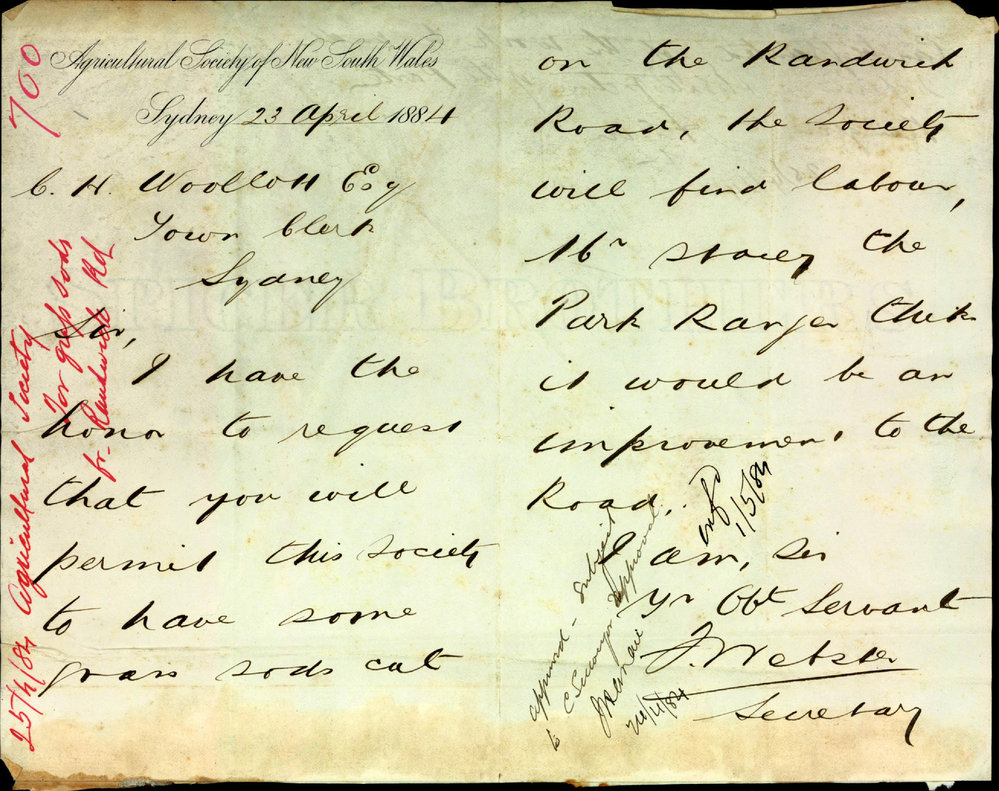 700
Agricultural Society of New South Wales
Sydney 23 April 1884
C. H. Woollcott Esq
Town Clerk
Sydney
Sir,
I have the
honor to request
that you will
permit this Society
to have some
grass sods cut
on the Randwick
Road, the Society
will find labour,
Mr Stacey the
Park Ranger thinks
it would be an
improvement to the
Road.
I am, Sir
Yr Obt Servant
J Webster
Secretary
25/4/84 Agricultural Society
for grass sods
fr. Randwick Rd
approved - subject
to C Surveyors approval
1/5/84